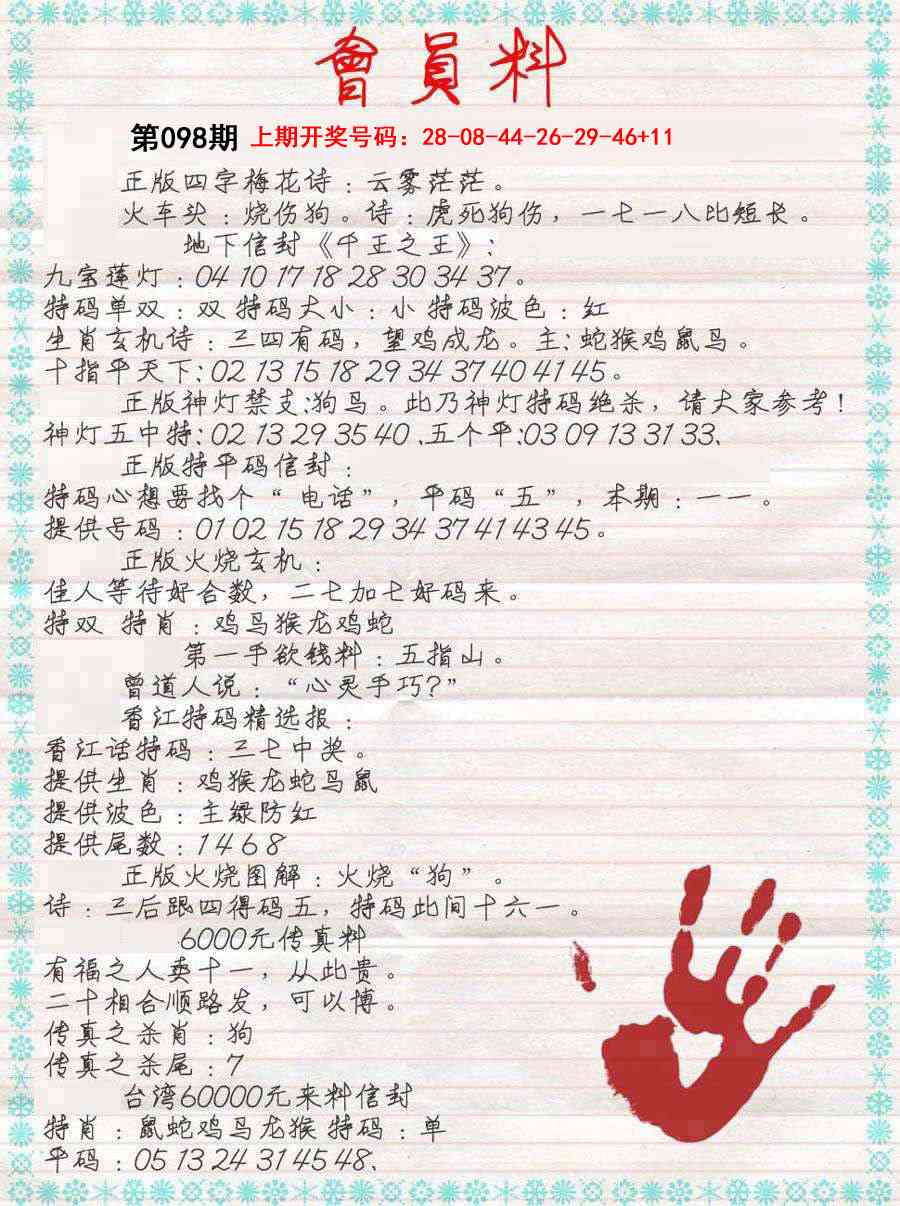 會員料
第098期 上期开奖号码：28-08-44-26-29-46+11
正版四字梅花诗：云雾茫茫。
火车头：烧伤狗。诗：虎死狗伤，一七一八比短长。
地下信封《千王之王》：
九宝莲灯：04 10 17 18 28 30 34 37。
特码单双：双 特码大小：小 特码波色：红
生肖玄机诗：三四有码，望鸡成龙。主：蛇猴鸡鼠鸟。
十指平天下：02 13 15 18 29 34 37 40 41 45。
正版神灯禁支:狗鸟。此乃神灯特码绝杀，请大家参考！
神灯五中特：02 13 29 35 40 、五个平:03 09 13 31 33、
正版特平码信封：
特码心想要找个“ 电话”，平码“五”，本期：一一。
提供号码：01 02 15 18 29 34 37 41 43 45。
正版火烧玄机：
佳人等待好合数，二七加七好码来。
特双 特肖：鸡鸟猴龙鸡蛇
第一手欲钱料：五指山。
曾道人说：“心灵手巧?”
香江特码精选报：
香江话特码：三七中奖。
提供生肖：鸡猴龙蛇鸟鼠
提供波色：主绿防红
提供尾数：1 4 6 8
正版火烧图解：火烧“狗”。
诗：三后跟四得码五，特码此间十六一。
6000元传真料
有福之人卖十一，从此贵。
二十相合顺路发，可以博。
传真之杀肖：狗
传真之杀尾：7
台湾60000元来料信封
特肖：鼠蛇鸡鸟龙猴 特码：单
平码：05 13 24 31 45 48、